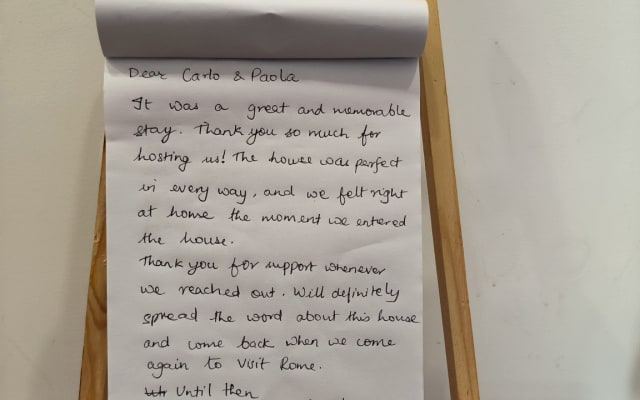 Dear Carlo & Paola
It was a great and memorable
stay. Thank you so much for
hosting us! The house was perfect
in every way, and we felt right
at home the moment we entered
the house.
Thank you for support whenever
we reached out. Will definitely
spread the word about this house
and come back when we come
again to visit Rome.
Until then